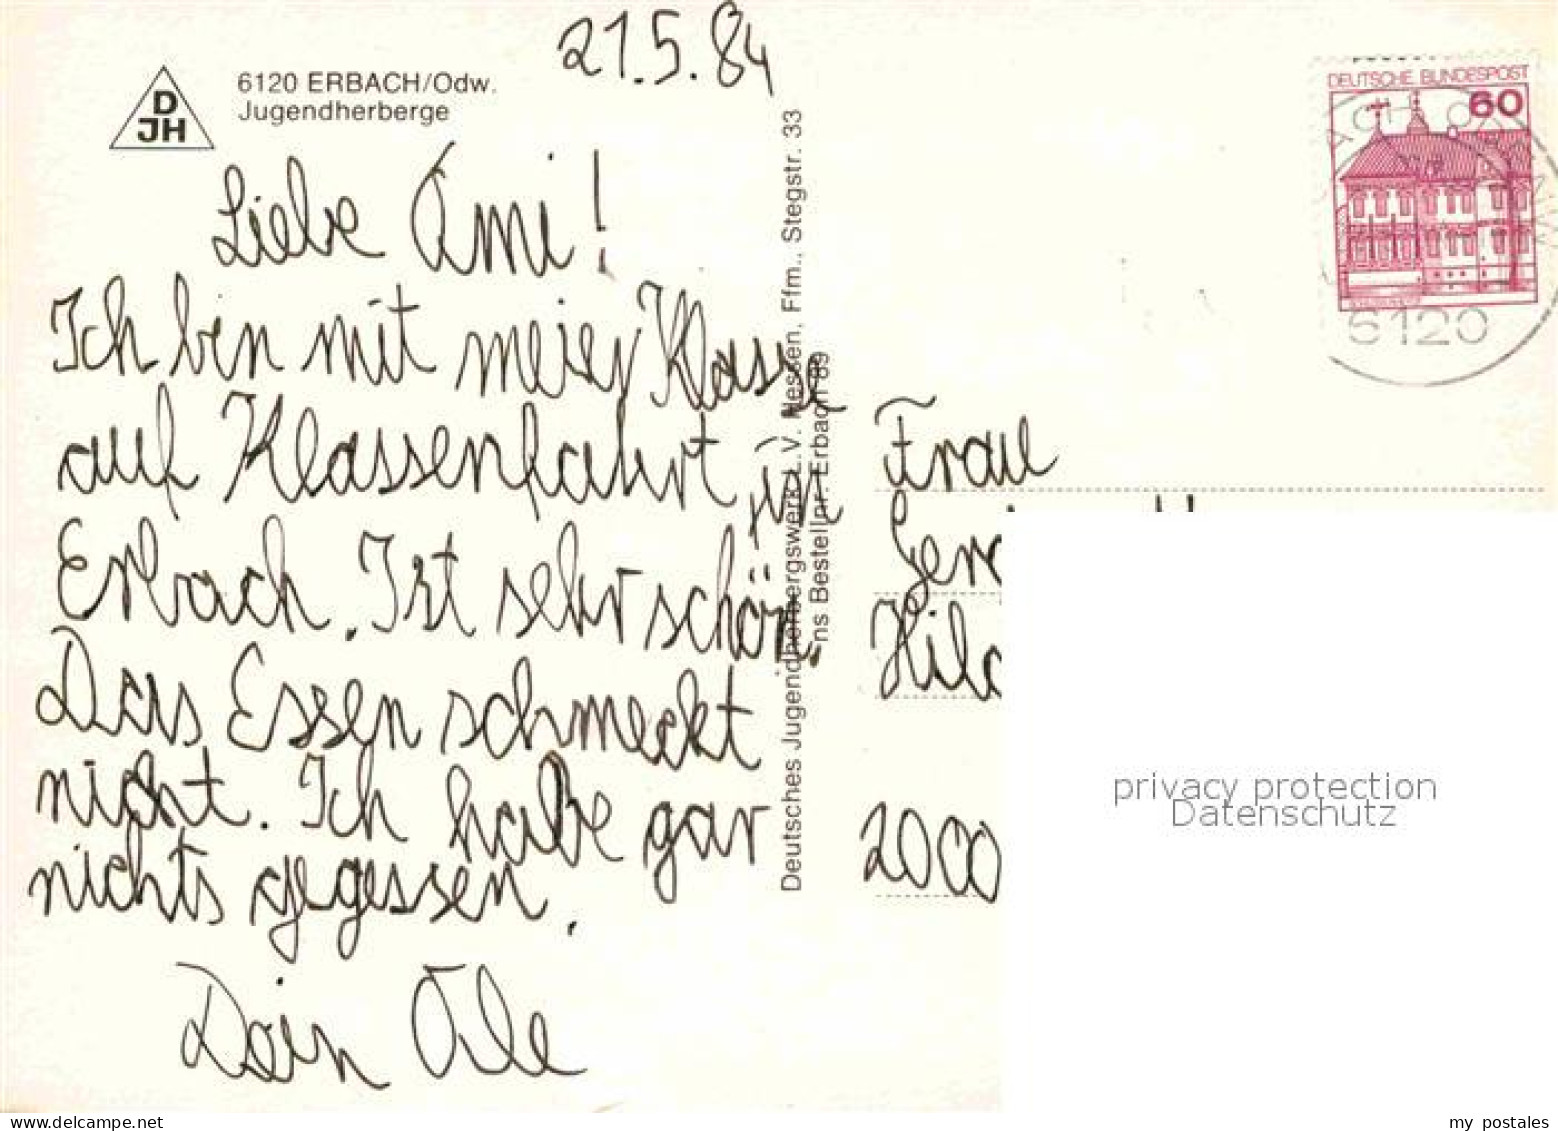 21.5.84
D
JH
6120 ERBACH/Odw.
Jugendherberge
Liebe Ami!
Ich bin mit meier Klasse
auf Klassenfahrt in
Erbach. Ist sehr schön.
Das Essen schmeckt
nicht. Ich habe gar
nichts gegessen.
Dein Ole
Deutsches Jugendherbergswerk L.V. Hessen, Ffm., Stegstr. 33
ns Bestellnr. Erbach 89
DEUTSCHE BUNDESPOST
60
6120
Frau
2000
privacy protection
Datenschutz
my postales